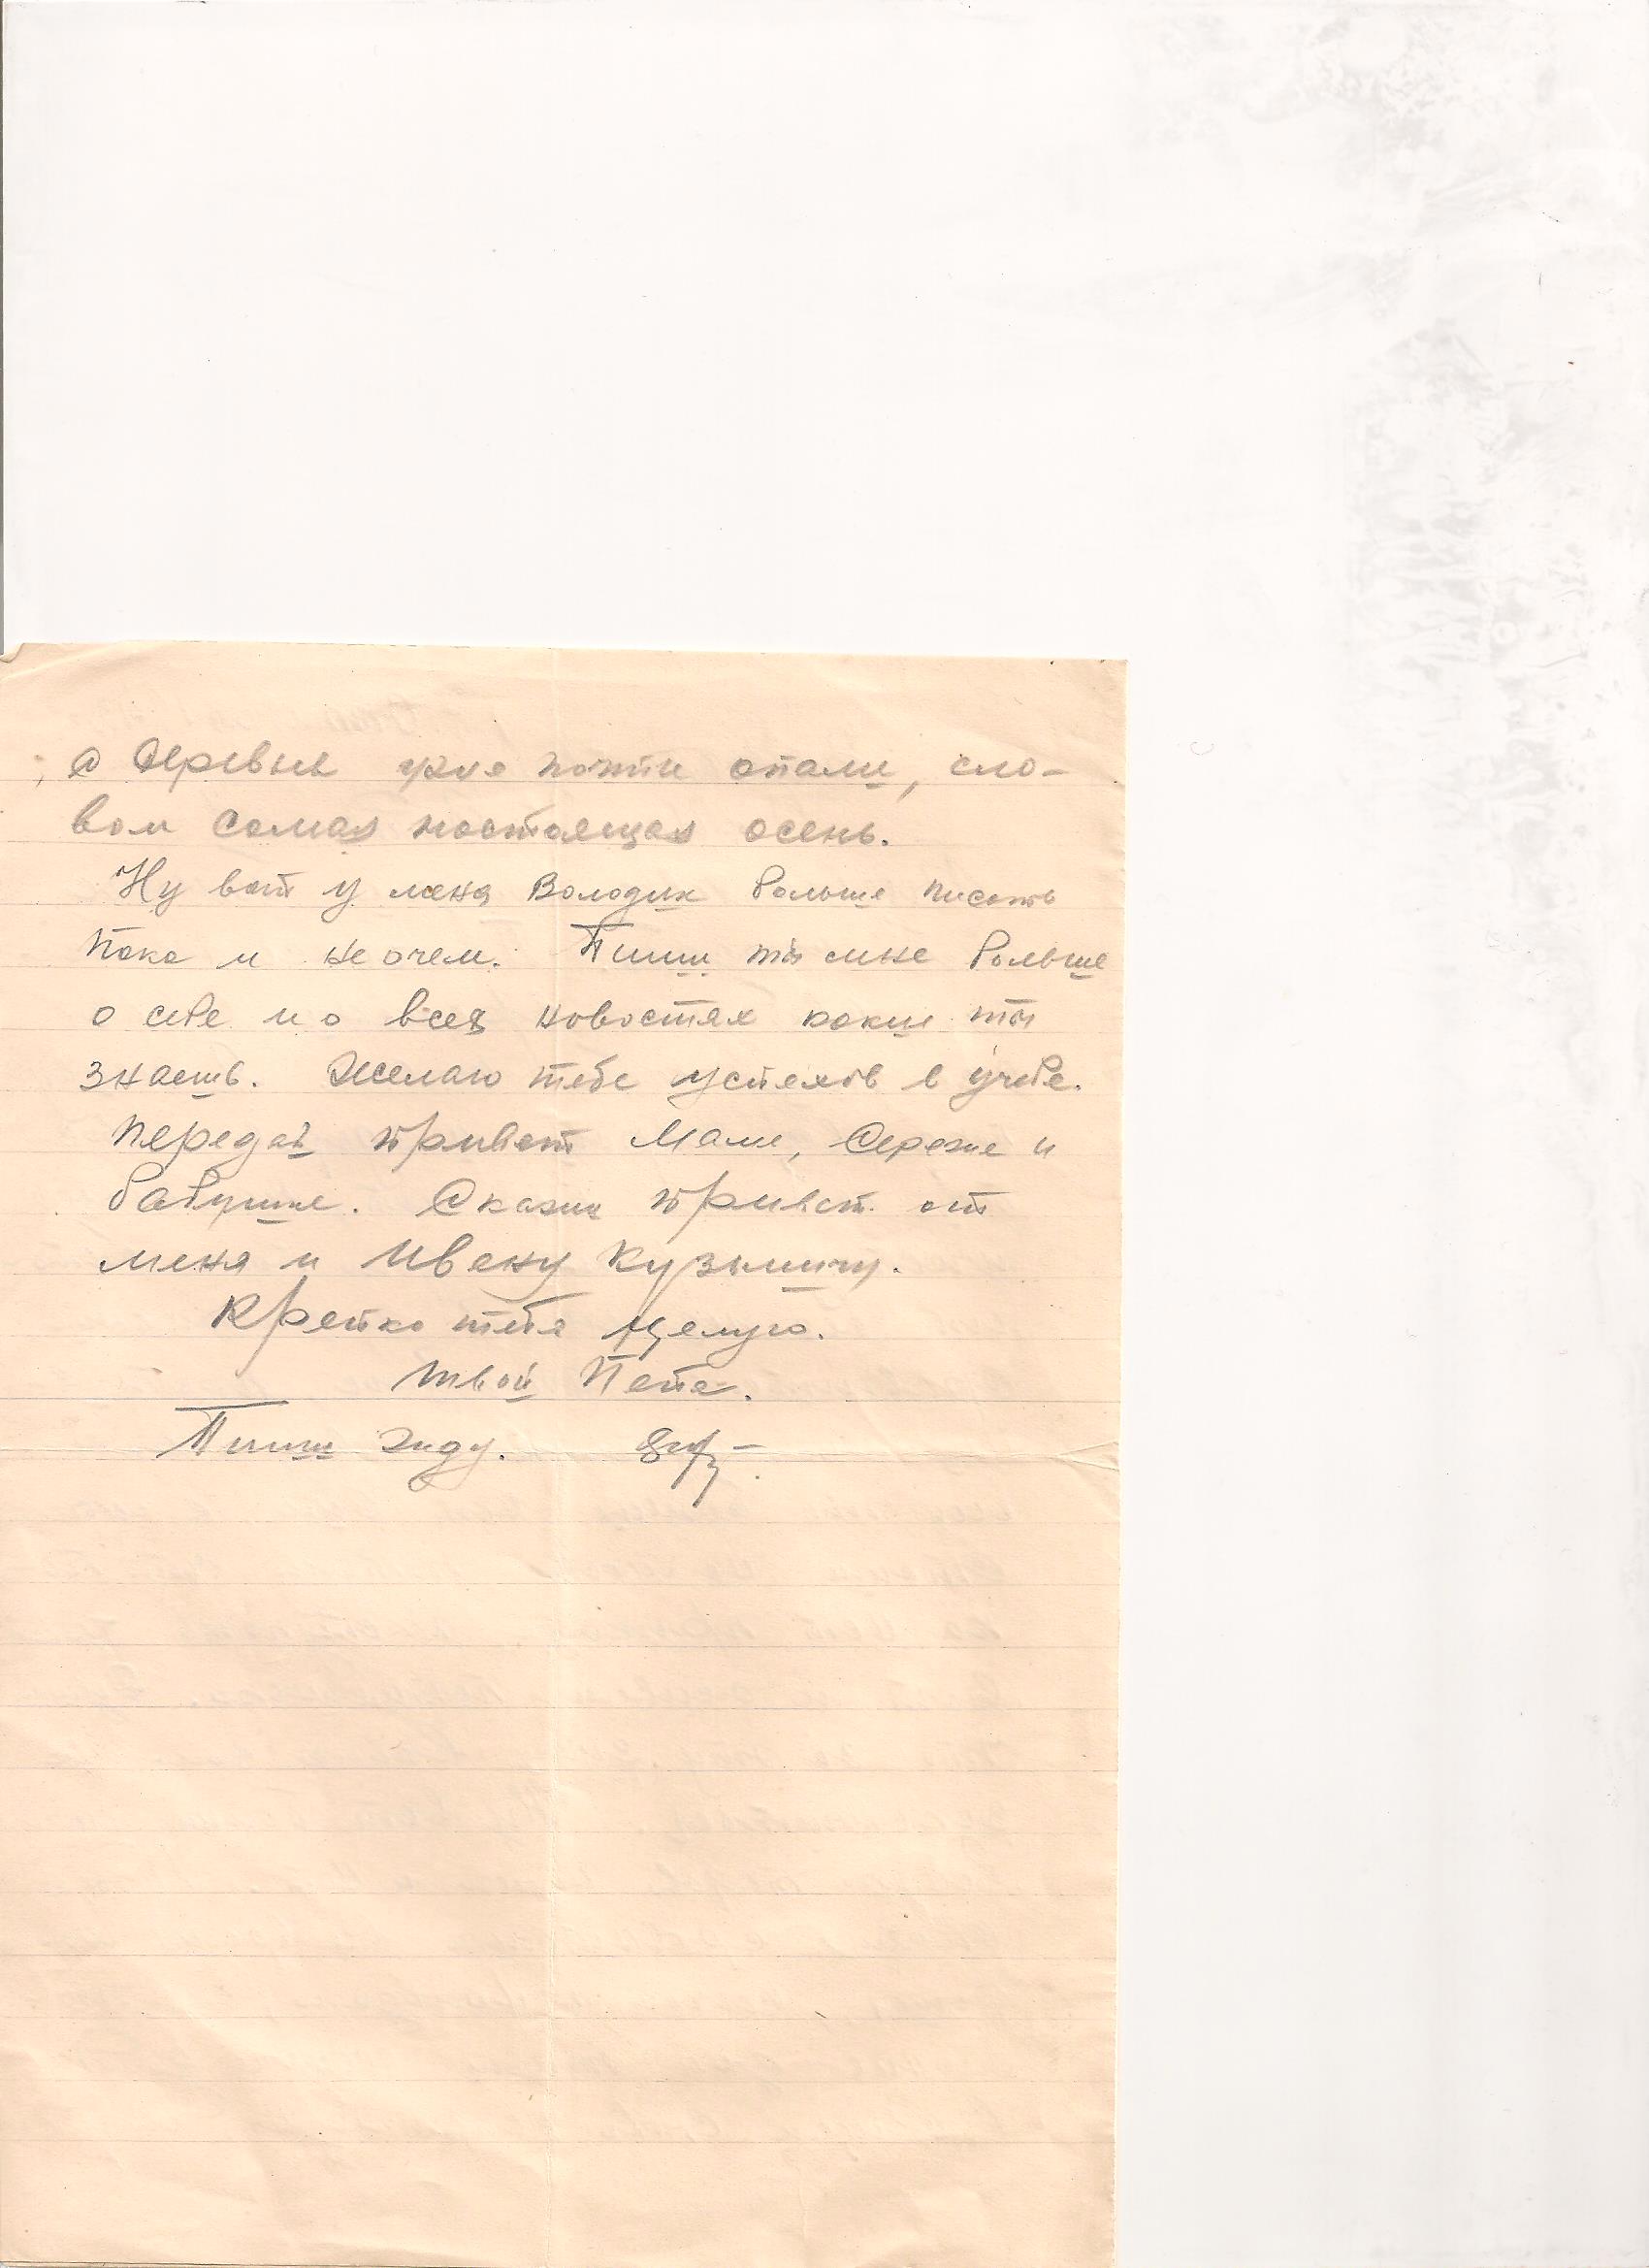 а деревья уже почти опали, сло-
вом самая настоящая осень.
Ну вот у меня Володик больше писать
пока и не очем. Пиши ты мне больше
о себе и о всех новостях какие ты
знаешь. Желаю тебе успехов в учебе.
Передай привет Маме, Сереже и
бабушке. Скажи привет от
меня и Ивану Кузьмичу.
Крепко тебя целую.
твой Папа.
Пиши жду.